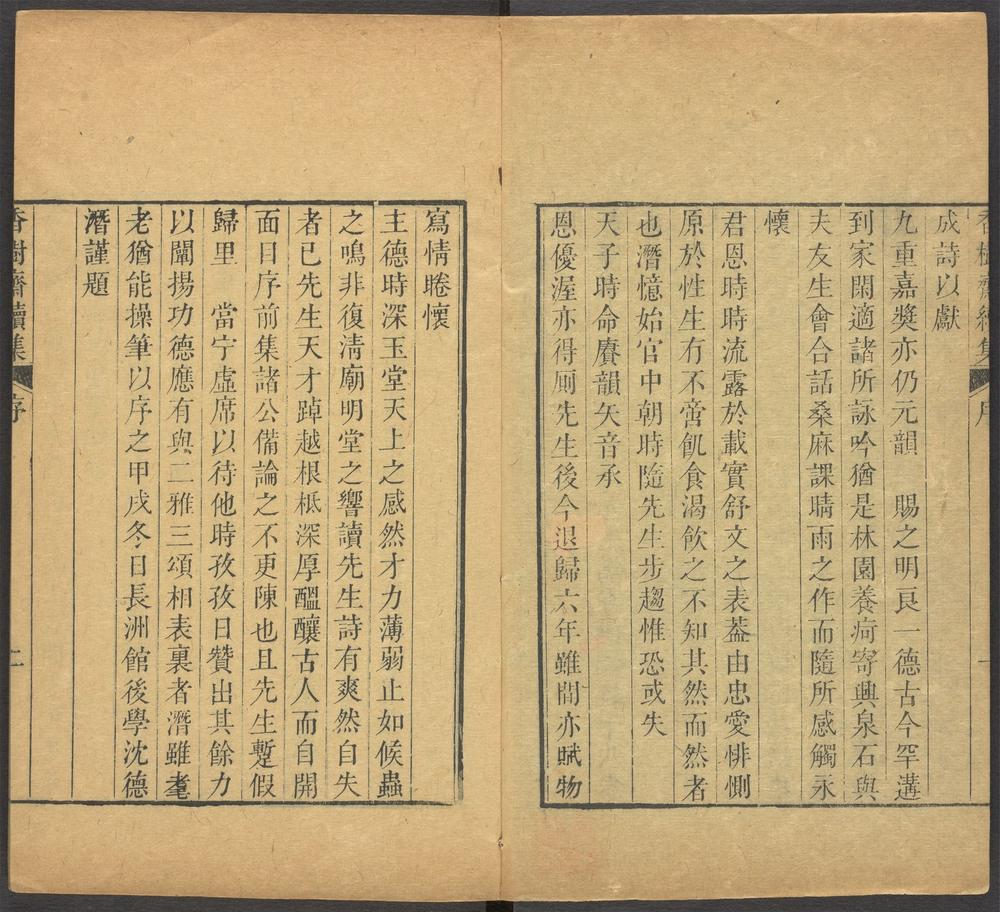 成詩以獻
九重嘉獎亦仍元韻　賜之明良一德古今罕遘
到家閑適諸所詠吟猶是林園養疴寄興泉石與
夫友生會合話桑麻課晴雨之作而隨所感觸永
懷
君恩時時流露於載實舒文之表蓋由忠愛悱惻
原於性生有不啻飢食渴飲之不知其然而然者
也潛憶始官中朝時隨先生步趨惟恐或失
天子時命賡韻矢音承
恩優渥亦得厠先生後今退歸六年雖間亦賦物
寫情睠懷
主德時深玉堂天上之感然才力薄弱止如候蟲
之鳴非復淸廟明堂之響讀先生詩有爽然自失
者已先生天才踔越根柢深厚醞釀古人而自開
面目序前集諸公備論之不更陳也且先生蹔假
歸里　當宁虛席以待他時孜孜日贊出其餘力
以闡揚功德應有與二雅三頌相表裏者潛雖耄
老猶能操筆以序之甲戌冬日長洲館後學沈德
潛謹題
香樹齋續集　序　二